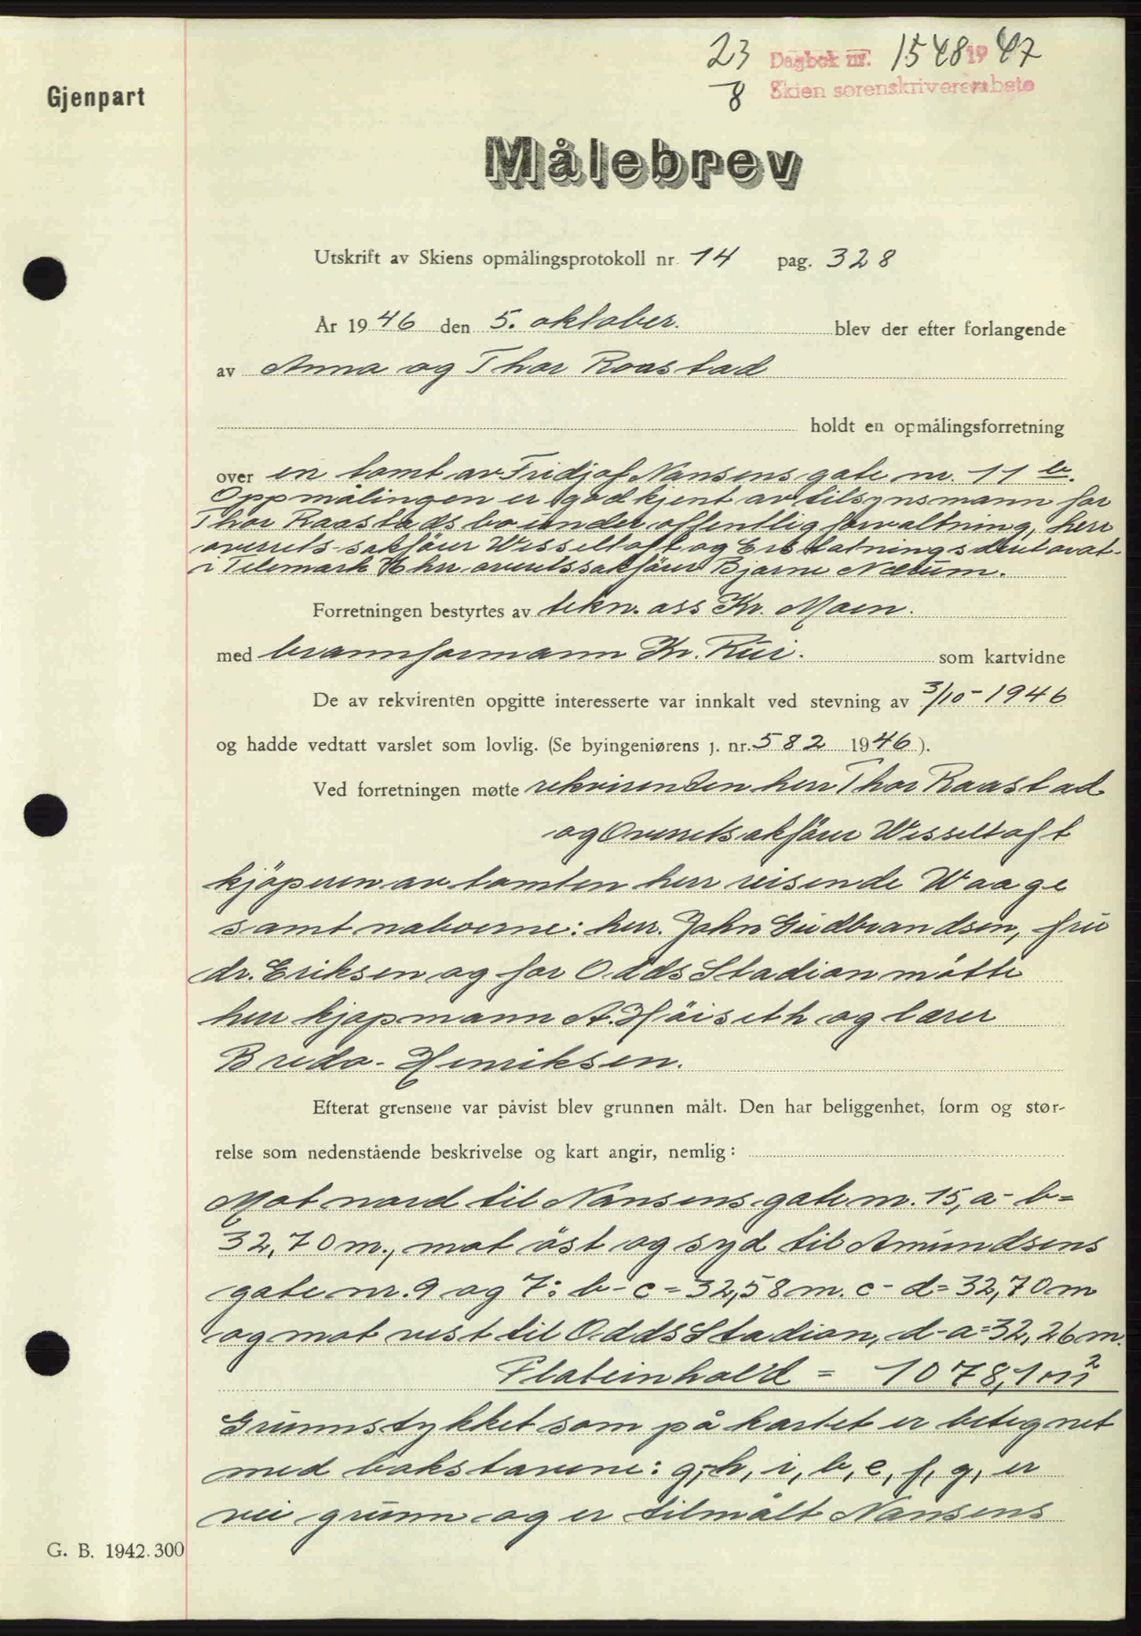 23/8 Dagbok nr. 1548 1947
Skien sorenskriverembete
Gjenpart
Målebrev
Utskrift av Skiens opmålingsprotokoll nr. 14 pag. 328
År 1946 den 5. oktober. blev der efter forlangende
av Anna og Thor Raastad
holdt en opmålingsforretning
over en tomt av Fridjof Nansens gate nr. 11 b.
Oppmålingen er godkjent av tilsynsmann for
Thor Raastads bo under offentlig forvaltning, herr
overrets sakfører Wesseltoft og Erstatningsdirektorat
i Telemark v/ herr overrettssakfører Bjarne Nærum.
Forretningen bestyrtes av tekn. ass Kr. Moen.
med brannformann Kr. Rui. som kartvidne
De av rekvirenten opgitte interesserte var innkalt ved stevning av 3/10-1946
og hadde vedtatt varslet som lovlig. (Se byingeniørens j. nr. 582 1946).
Ved forretningen møtte rekvirenten herr Thor Raastad
og Overretsakfører Wesseltoft
kjöperen av tomten herr reisende Waage
samt naboerne: herr. John Gudbrandsen, fru
dr. Eriksen og for Odds Stadion møtte
herr kjøpmann A. Höiseth og lærer
Bredo-Henriksen.
Efterat grensene var påvist blev grunnen målt. Den har beliggenhet, form og stør-
relse som nedenstående beskrivelse og kart angir, nemlig:
Mot nord til Nansens gate nr. 15, a-b=
32,70 m., mot öst og syd til Amundsens
gate nr. 9 og 7: b-c=32,58 m. c-d=32,70 m
og mot vest til Odds Stadion, d-a=32,26 m.
Flateinhold = 1078,1 m²
Grunnstykket som på kartet er betegnet
med bokstavene: g, h, i, b, e, f, g, er
vei grunn og er tilmålt Nansens
G. B. 1942. 300